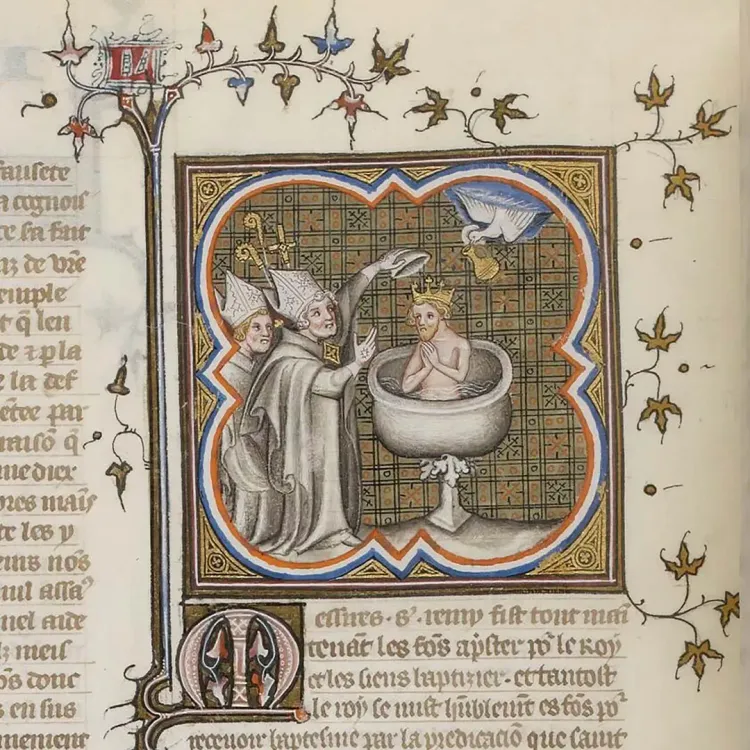 fausete
a cognois
ce sa fait
de vr̄e
temple
t q̄ len
de ⁊ pla
e la def
etee par
raisō q̄
medier
ores mais
te les y
eins nos
nul assaꝰ
uel aide
meis
os donc
s en sus
mement
Messires . s᾿. remy fist tout mai
tenāt les fōs aṗster po᾿ le Roy
et les siens baptizier . et tantost
le roy se mist hūblemēt es fōs po᾿
recevoir baptesme par la predicaciō que saint